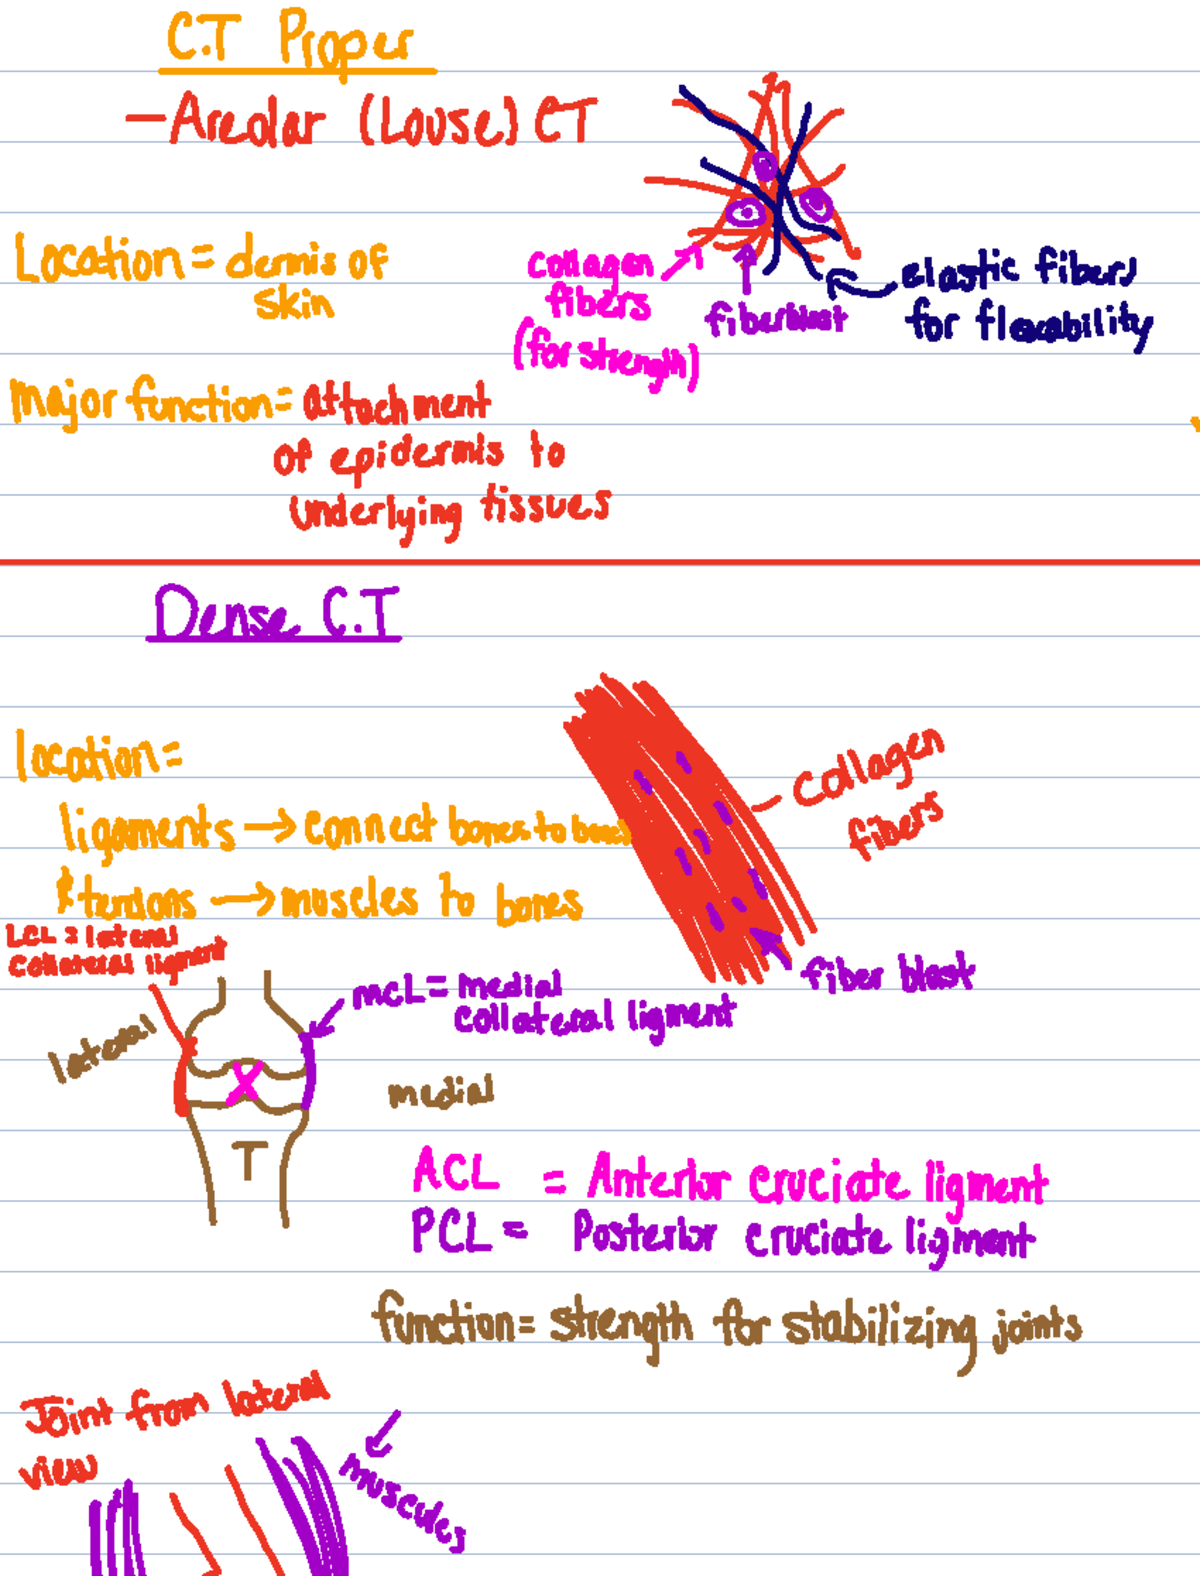 C.T Proper
- Areolar (Louse) CT
Location = dermis of
skin
collagen
fibers
(for strength)
fiberblast
elastic fibers
for flexability
Major function = attachment
of epidermis to
underlying tissues
Dense C.T
location =
ligaments → connect bones to bones
& tendons → muscles to bones
collagen
fibers
fiber blast
LCL = lateral
collateral ligment
mcL = medial
collateral ligment
lateral
medial
T
ACL = Anterior cruciate ligment
PCL = Posterior cruciate ligment
function = strength for stabilizing joints
Joint from lateral
view
muscules